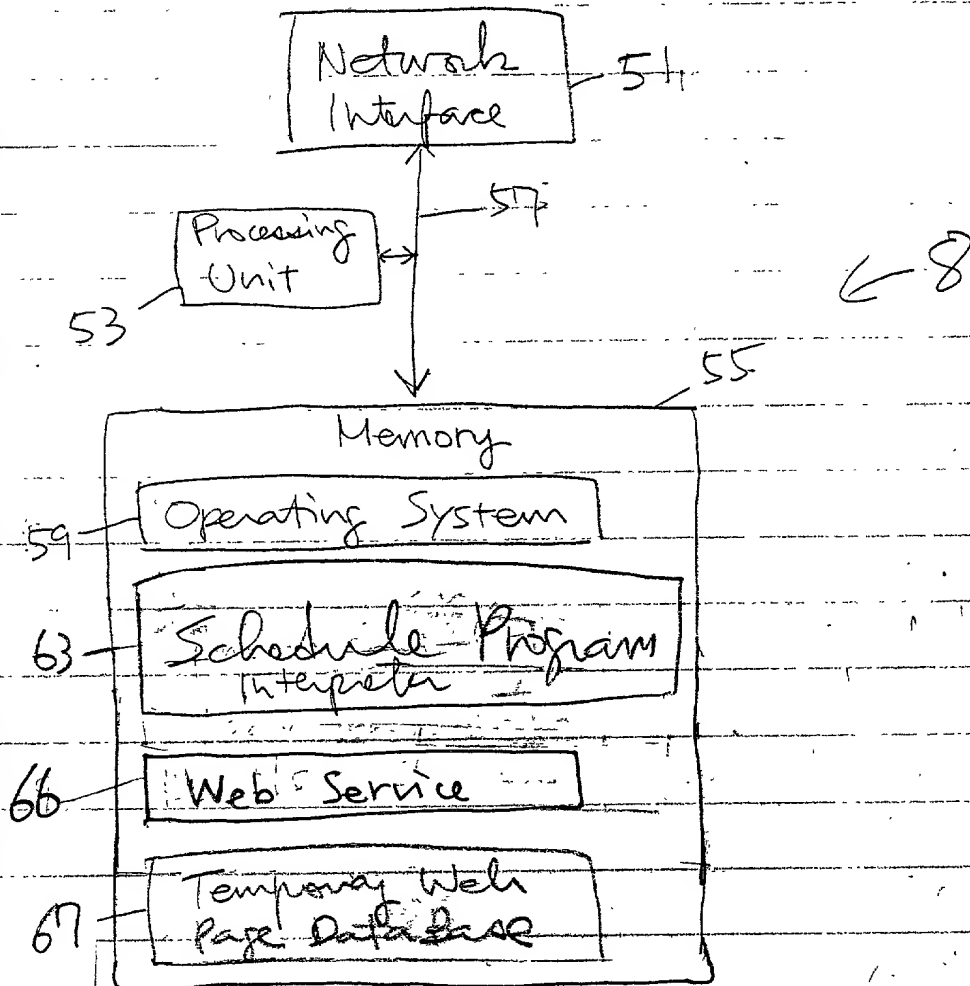 Network
Interface
54
57
Processing
Unit
53
8
55
Memory
Operating System
59
Schedule Program
Interpreter
63
Web Service
66
Temporary Web
Page DataBase
67